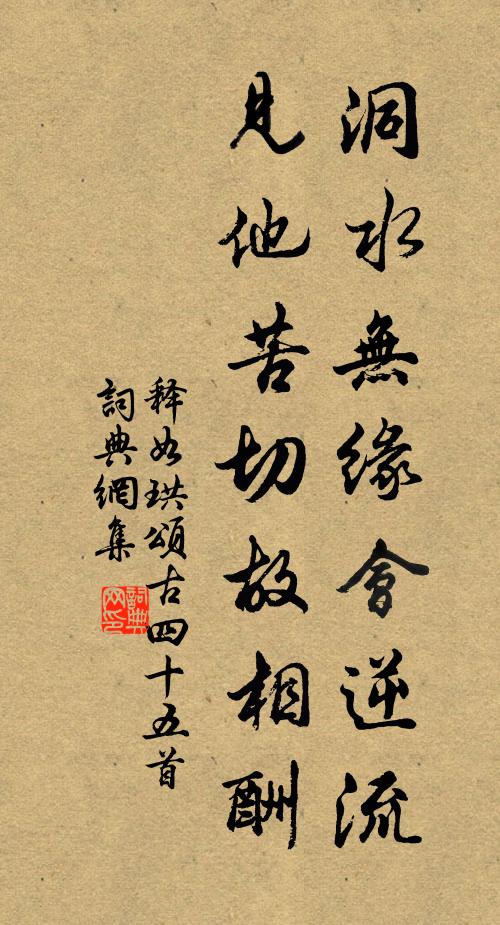 洞水無緣會逆流
見他苦切故相酬
释如珙頌古四十五首
詞典網集
詞典網印